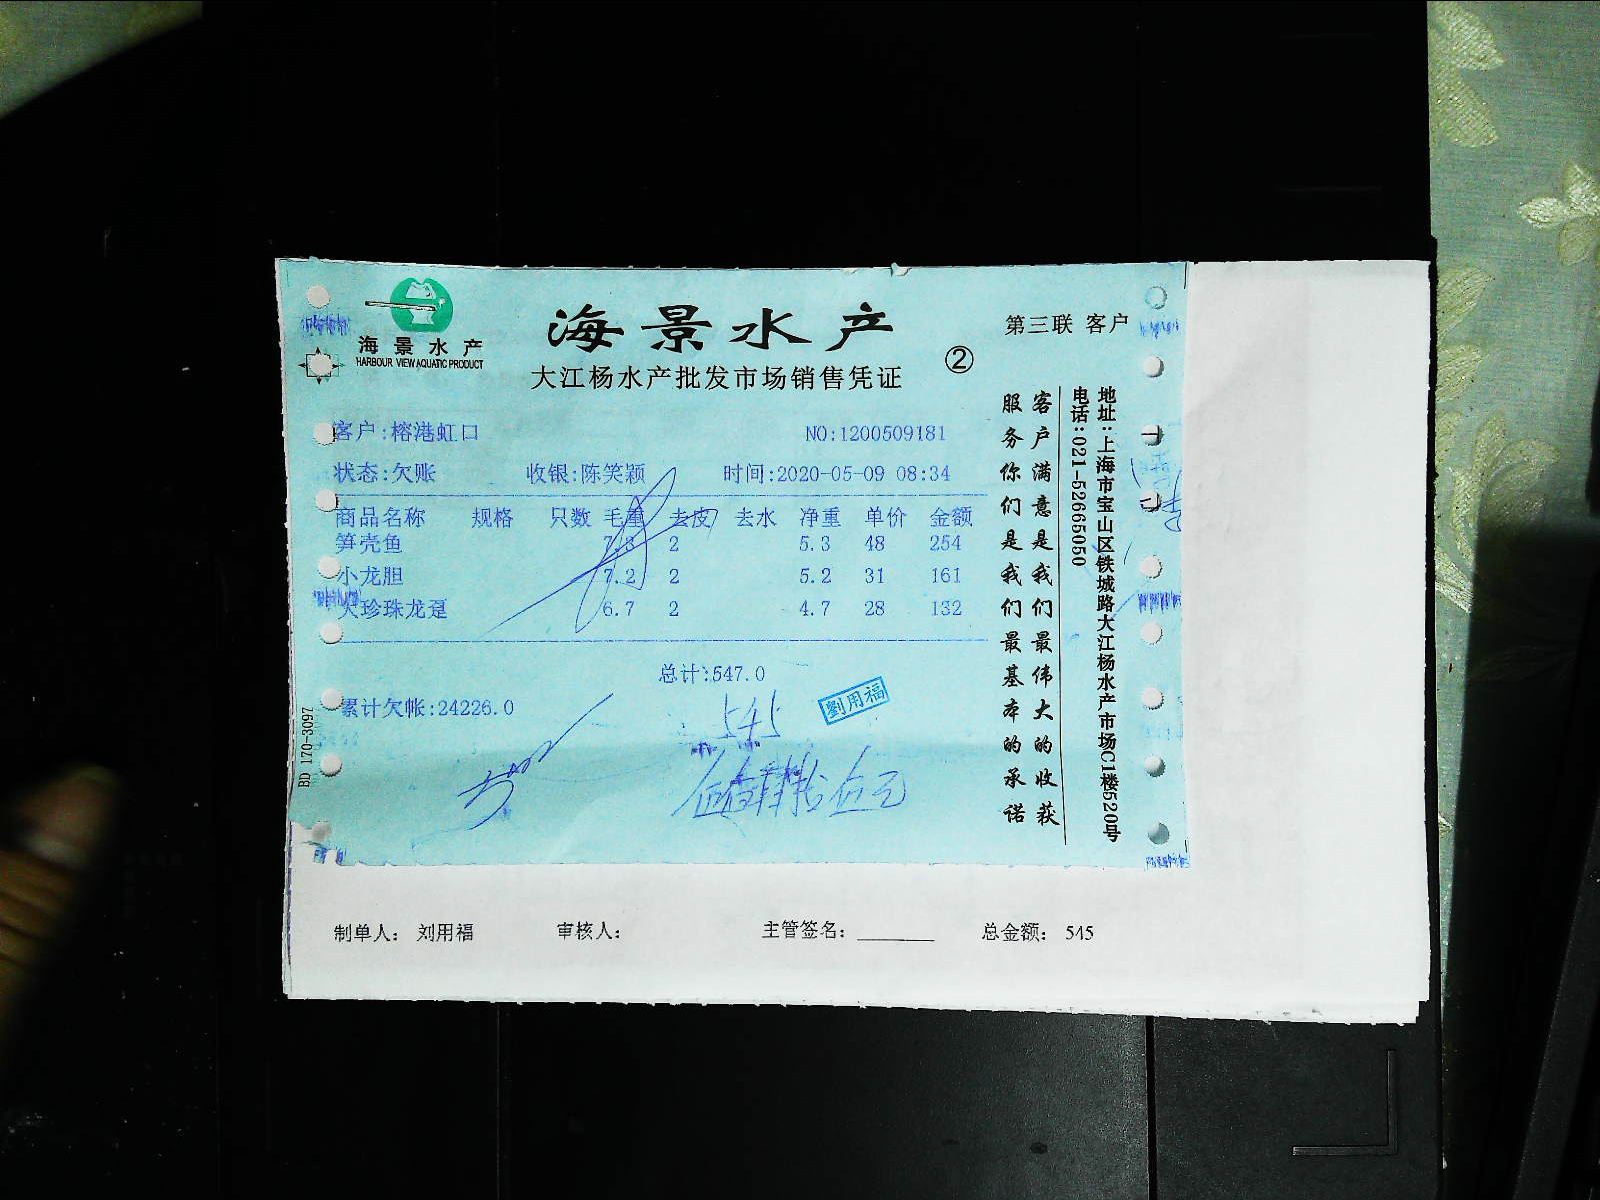 海景水产
HARBOUR VIEW AQUATIC PRODUCT
海景水产
大江杨水产批发市场销售凭证
②
第三联 客户
客户:榕港虹口 NO:1200509181
状态:欠账 收银:陈笑颖 时间:2020-05-09 08:34
商品名称 规格 只数 毛重 去皮 去水 净重 单价 金额
笋壳鱼 7.3 2 5.3 48 254
小龙胆 7.2 2 5.2 31 161
大珍珠龙趸 6.7 2 4.7 28 132
总计:547.0
累计欠帐:24226.0
545
劉用福
伍佰肆拾伍元
BD 170-3097
客户满意是我们最伟大的收获
服务你们是我们最基本的承诺
地址:上海市宝山区铁城路大江杨水产市场C1楼520号
电话:021-52665050
制单人: 刘用福 审核人: 主管签名: 总金额: 545